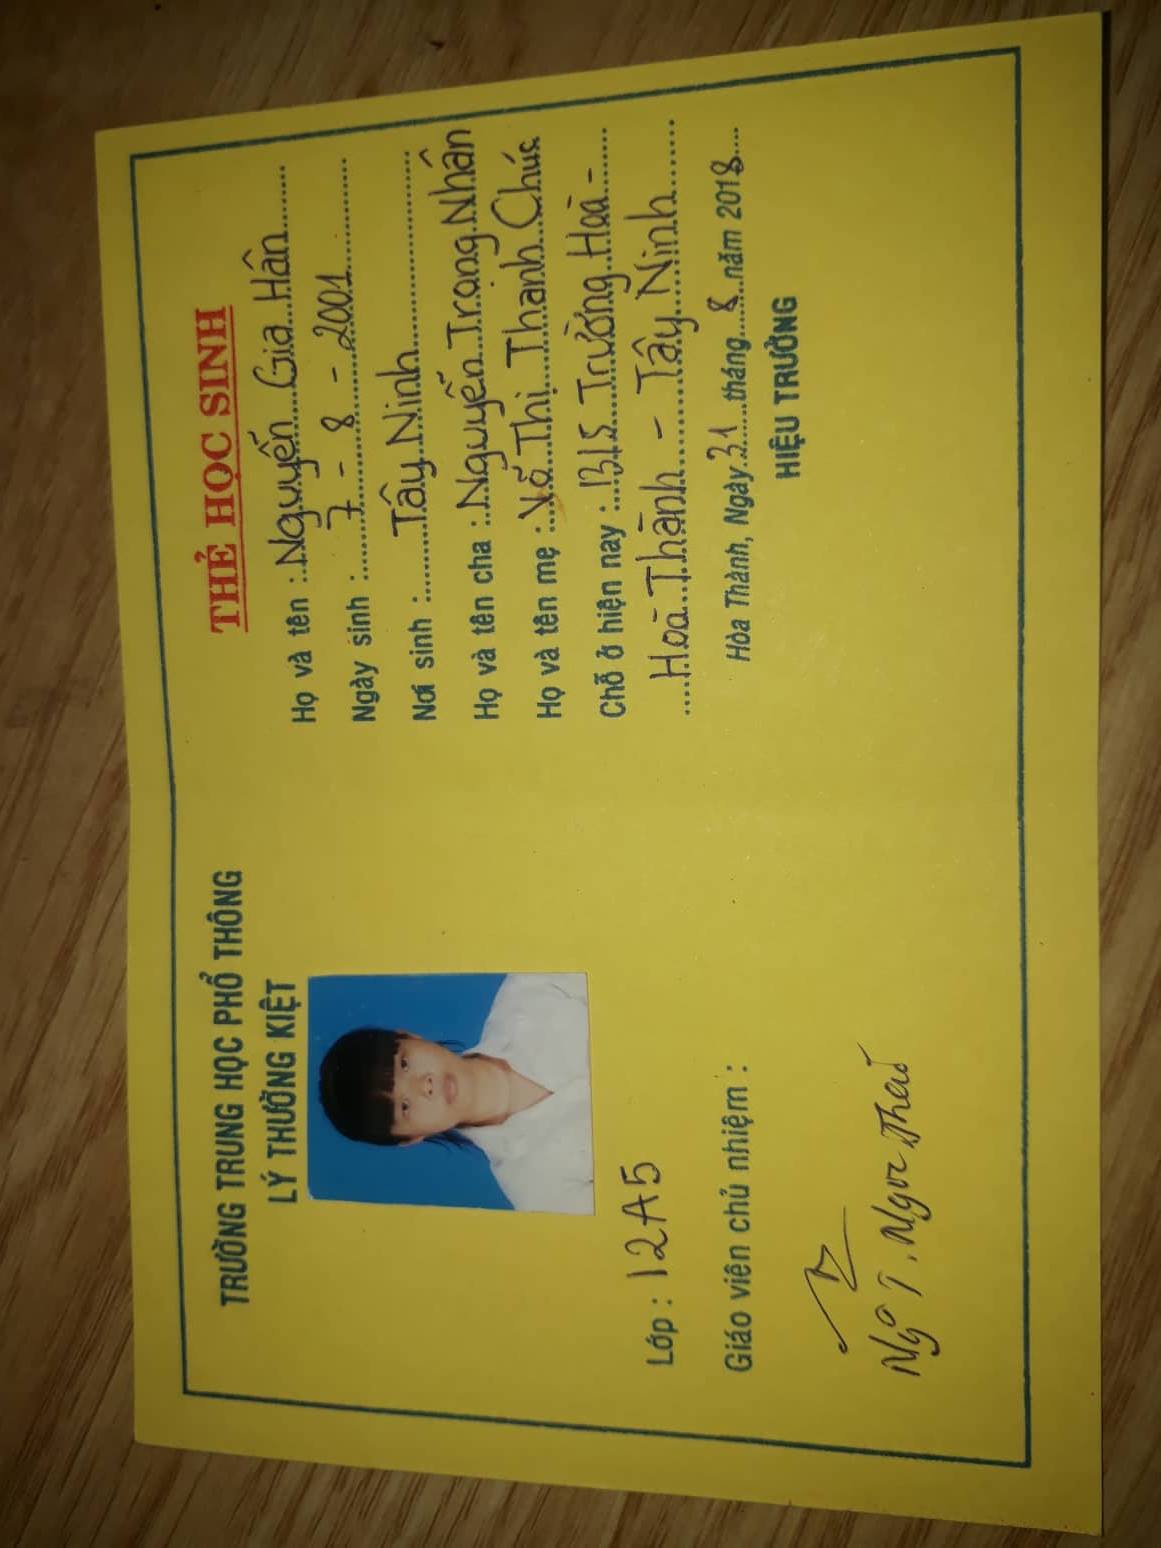 TRƯỜNG TRUNG HỌC PHỔ THÔNG
LÝ THƯỜNG KIỆT
Lớp : 12A5
Giáo viên chủ nhiệm :
Ngô T. Ngọc Thảo
THẺ HỌC SINH
Họ và tên : Nguyễn Gia Hân
Ngày sinh : 7 - 8 - 2001
Nơi sinh : Tây Ninh
Họ và tên cha : Nguyễn Trọng Nhân
Họ và tên mẹ : Võ Thị Thanh Chúc
Chỗ ở hiện nay : 13/5 Trường Hoà -
Hoà Thành - Tây Ninh
Hòa Thành, Ngày 31 tháng 8 năm 2018
HIỆU TRƯỞNG